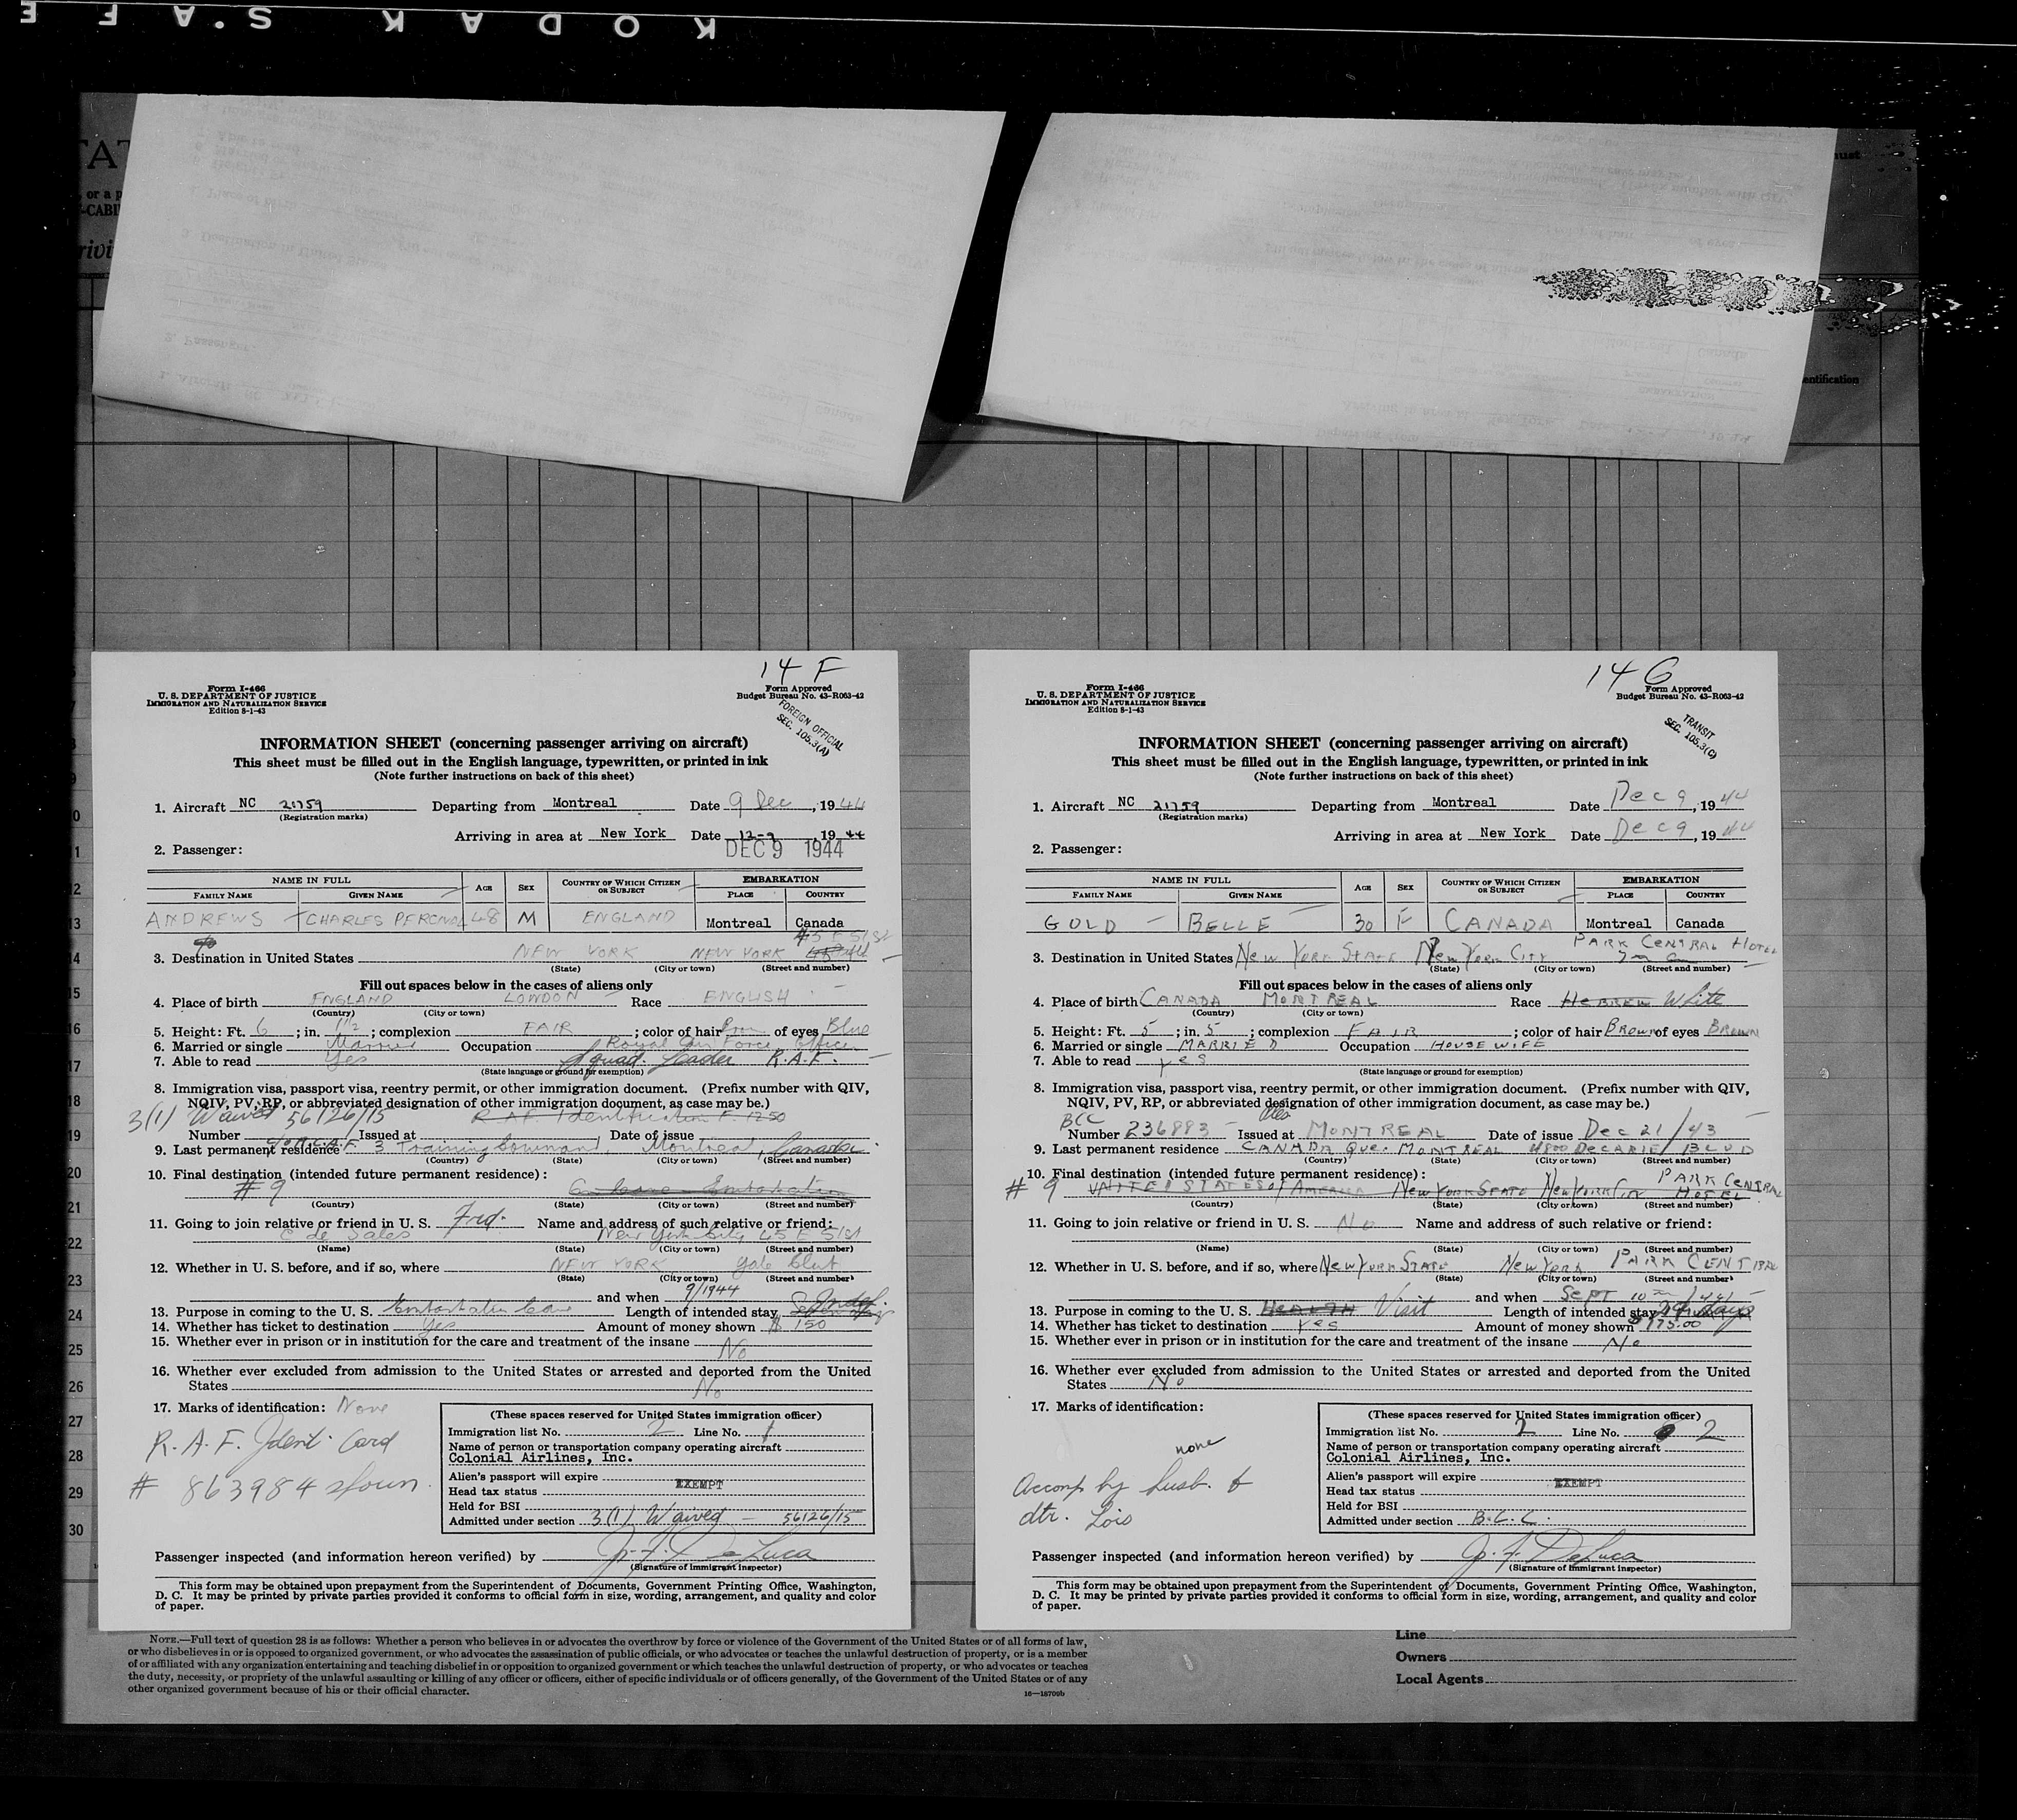 KODAK S.AFE
14 F
Form I-466
U. S. DEPARTMENT OF JUSTICE
IMMIGRATION AND NATURALIZATION SERVICE
Edition 8-1-43
Form Approved
Budget Bureau No. 43-R063-42
FOREIGN OFFICIAL
SEC. 105.3(A)
INFORMATION SHEET (concerning passenger arriving on aircraft)
This sheet must be filled out in the English language, typewritten, or printed in ink
(Note further instructions on back of this sheet)
1. Aircraft NC 21759 Departing from Montreal Date 9 Dec, 1944
(Registration marks)
Arriving in area at New York Date 12-9, 1944
2. Passenger: DEC 9 1944
NAME IN FULL AGE SEX COUNTRY OF WHICH CITIZEN OR SUBJECT EMBARKATION
FAMILY NAME GIVEN NAME PLACE COUNTRY
ANDREWS CHARLES PERCIVAL 48 M ENGLAND Montreal Canada
3. Destination in United States NEW YORK NEW YORK 45 E 51st
(State) (City or town) (Street and number)
Fill out spaces below in the cases of aliens only
4. Place of birth ENGLAND LONDON Race ENGLISH
(Country) (City or town)
5. Height: Ft. 6; in. 1½; complexion FAIR; color of hair of eyes Blue
6. Married or single Married Occupation Royal Air Force Officer
7. Able to read Yes Squad. Leader R.A.F.
(State language or ground for exemption)
8. Immigration visa, passport visa, reentry permit, or other immigration document. (Prefix number with QIV,
NQIV, PV, RP, or abbreviated designation of other immigration document, as case may be.)
3(1) Waived 56126/15 R A F Identification F. 1250
Number Issued at Date of issue
9. Last permanent residence 3 Training Command, Montreal, Canada
(Country) (State) (City or town) (Street and number)
10. Final destination (intended future permanent residence):
# 9
(Country) (State) (City or town) (Street and number)
11. Going to join relative or friend in U. S. Frd. Name and address of such relative or friend:
C de Sales New York City 45 E 51st
(Name) (State) (City or town) (Street and number)
12. Whether in U. S. before, and if so, where NEW YORK Yale Club
(State) (City or town) (Street and number)
and when 9/1944
13. Purpose in coming to the U. S. Length of intended stay
14. Whether has ticket to destination Yes Amount of money shown $ 150
15. Whether ever in prison or in institution for the care and treatment of the insane No
16. Whether ever excluded from admission to the United States or arrested and deported from the United
States No
17. Marks of identification: None
R.A.F. Ident. Card
# 863984 shown.
(These spaces reserved for United States immigration officer)
Immigration list No. 2 Line No. 1
Name of person or transportation company operating aircraft
Colonial Airlines, Inc.
Alien's passport will expire
Head tax status EXEMPT
Held for BSI
Admitted under section 3(1) Waived - 56126/15
Passenger inspected (and information hereon verified) by J. F. DeLuca
(Signature of immigrant inspector)
This form may be obtained upon prepayment from the Superintendent of Documents, Government Printing Office, Washington,
D. C. It may be printed by private parties provided it conforms to official form in size, wording, arrangement, and quality and color
of paper.
14 G
Form I-466
U. S. DEPARTMENT OF JUSTICE
IMMIGRATION AND NATURALIZATION SERVICE
Edition 8-1-43
Form Approved
Budget Bureau No. 43-R063-42
TRANSIT
SEC. 105.3(C)
INFORMATION SHEET (concerning passenger arriving on aircraft)
This sheet must be filled out in the English language, typewritten, or printed in ink
(Note further instructions on back of this sheet)
1. Aircraft NC 21759 Departing from Montreal Date Dec 9, 1944
(Registration marks)
Arriving in area at New York Date Dec 9, 1944
2. Passenger:
NAME IN FULL AGE SEX COUNTRY OF WHICH CITIZEN OR SUBJECT EMBARKATION
FAMILY NAME GIVEN NAME PLACE COUNTRY
GOLD BELLE 30 F CANADA Montreal Canada
3. Destination in United States New York State New York City PARK CENTRAL HOTEL
(State) (City or town) (Street and number)
Fill out spaces below in the cases of aliens only
4. Place of birth CANADA MONTREAL Race HEBREW White
(Country) (City or town)
5. Height: Ft. 5; in. 5; complexion FAIR; color of hair BROWN of eyes BROWN
6. Married or single MARRIED Occupation HOUSEWIFE
7. Able to read yes
(State language or ground for exemption)
8. Immigration visa, passport visa, reentry permit, or other immigration document. (Prefix number with QIV,
NQIV, PV, RP, or abbreviated designation of other immigration document, as case may be.)
BCC
Number 236883 Issued at MONTREAL Date of issue Dec 21/43
9. Last permanent residence CANADA Que. MONTREAL 4800 DECARIE BLVD
(Country) (State) (City or town) (Street and number)
10. Final destination (intended future permanent residence):
# 9 UNITED STATES of AMERICA NEW YORK STATE NEW YORK CITY PARK CENTRAL HOTEL
(Country) (State) (City or town) (Street and number)
11. Going to join relative or friend in U. S. No Name and address of such relative or friend:
(Name) (State) (City or town) (Street and number)
12. Whether in U. S. before, and if so, where New York State New York PARK CENTRAL
(State) (City or town) (Street and number)
and when Sept 10
13. Purpose in coming to the U. S. HEALTH Visit Length of intended stay days
14. Whether has ticket to destination yes Amount of money shown $175.00
15. Whether ever in prison or in institution for the care and treatment of the insane No
16. Whether ever excluded from admission to the United States or arrested and deported from the United
States No
17. Marks of identification:
none
Accomp by husb. &
dtr. Lois
(These spaces reserved for United States immigration officer)
Immigration list No. 2 Line No. 2
Name of person or transportation company operating aircraft
Colonial Airlines, Inc.
Alien's passport will expire
Head tax status EXEMPT
Held for BSI
Admitted under section B.C.C.
Passenger inspected (and information hereon verified) by J. F. DeLuca
(Signature of immigrant inspector)
This form may be obtained upon prepayment from the Superintendent of Documents, Government Printing Office, Washington,
D. C. It may be printed by private parties provided it conforms to official form in size, wording, arrangement, and quality and color
of paper.
NOTE.—Full text of question 28 is as follows: Whether a person who believes in or advocates the overthrow by force or violence of the Government of the United States or of all forms of law,
or who disbelieves in or is opposed to organized government, or who advocates the assassination of public officials, or who advocates or teaches the unlawful destruction of property, or is a member
of or affiliated with any organization entertaining and teaching disbelief in or opposition to organized government or which teaches the unlawful destruction of property, or who advocates or teaches
the duty, necessity, or propriety of the unlawful assaulting or killing of any officer or officers, either of specific individuals or of officers generally, of the Government of the United States or of any
other organized government because of his or their official character.
16—18700b
Line
Owners
Local Agents